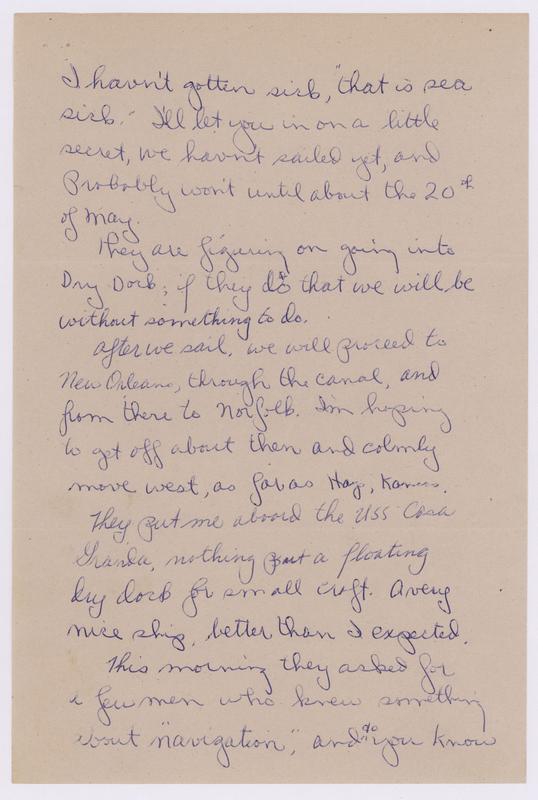 I havn't gotten sick, "that is sea
sick." I'll let you in on a little
secret, we havn't sailed yet, and
Probably won't until about the 20th
of May.
They are figuring on going into
Dry Dock; if they do that we will be
without something to do.
After we sail, we will proceed to
New Orleans, through the canal, and
from there to Norfolk. I'm hoping
to get off about then and calmly
move west, as far as Hays, Kansas.
They put me aboard the USS Casa
Granda, nothing but a floating
dry dock for small craft. A very
nice ship, better than I expected.
This morning they asked for
a few men who knew something
about "navigation", and as you know